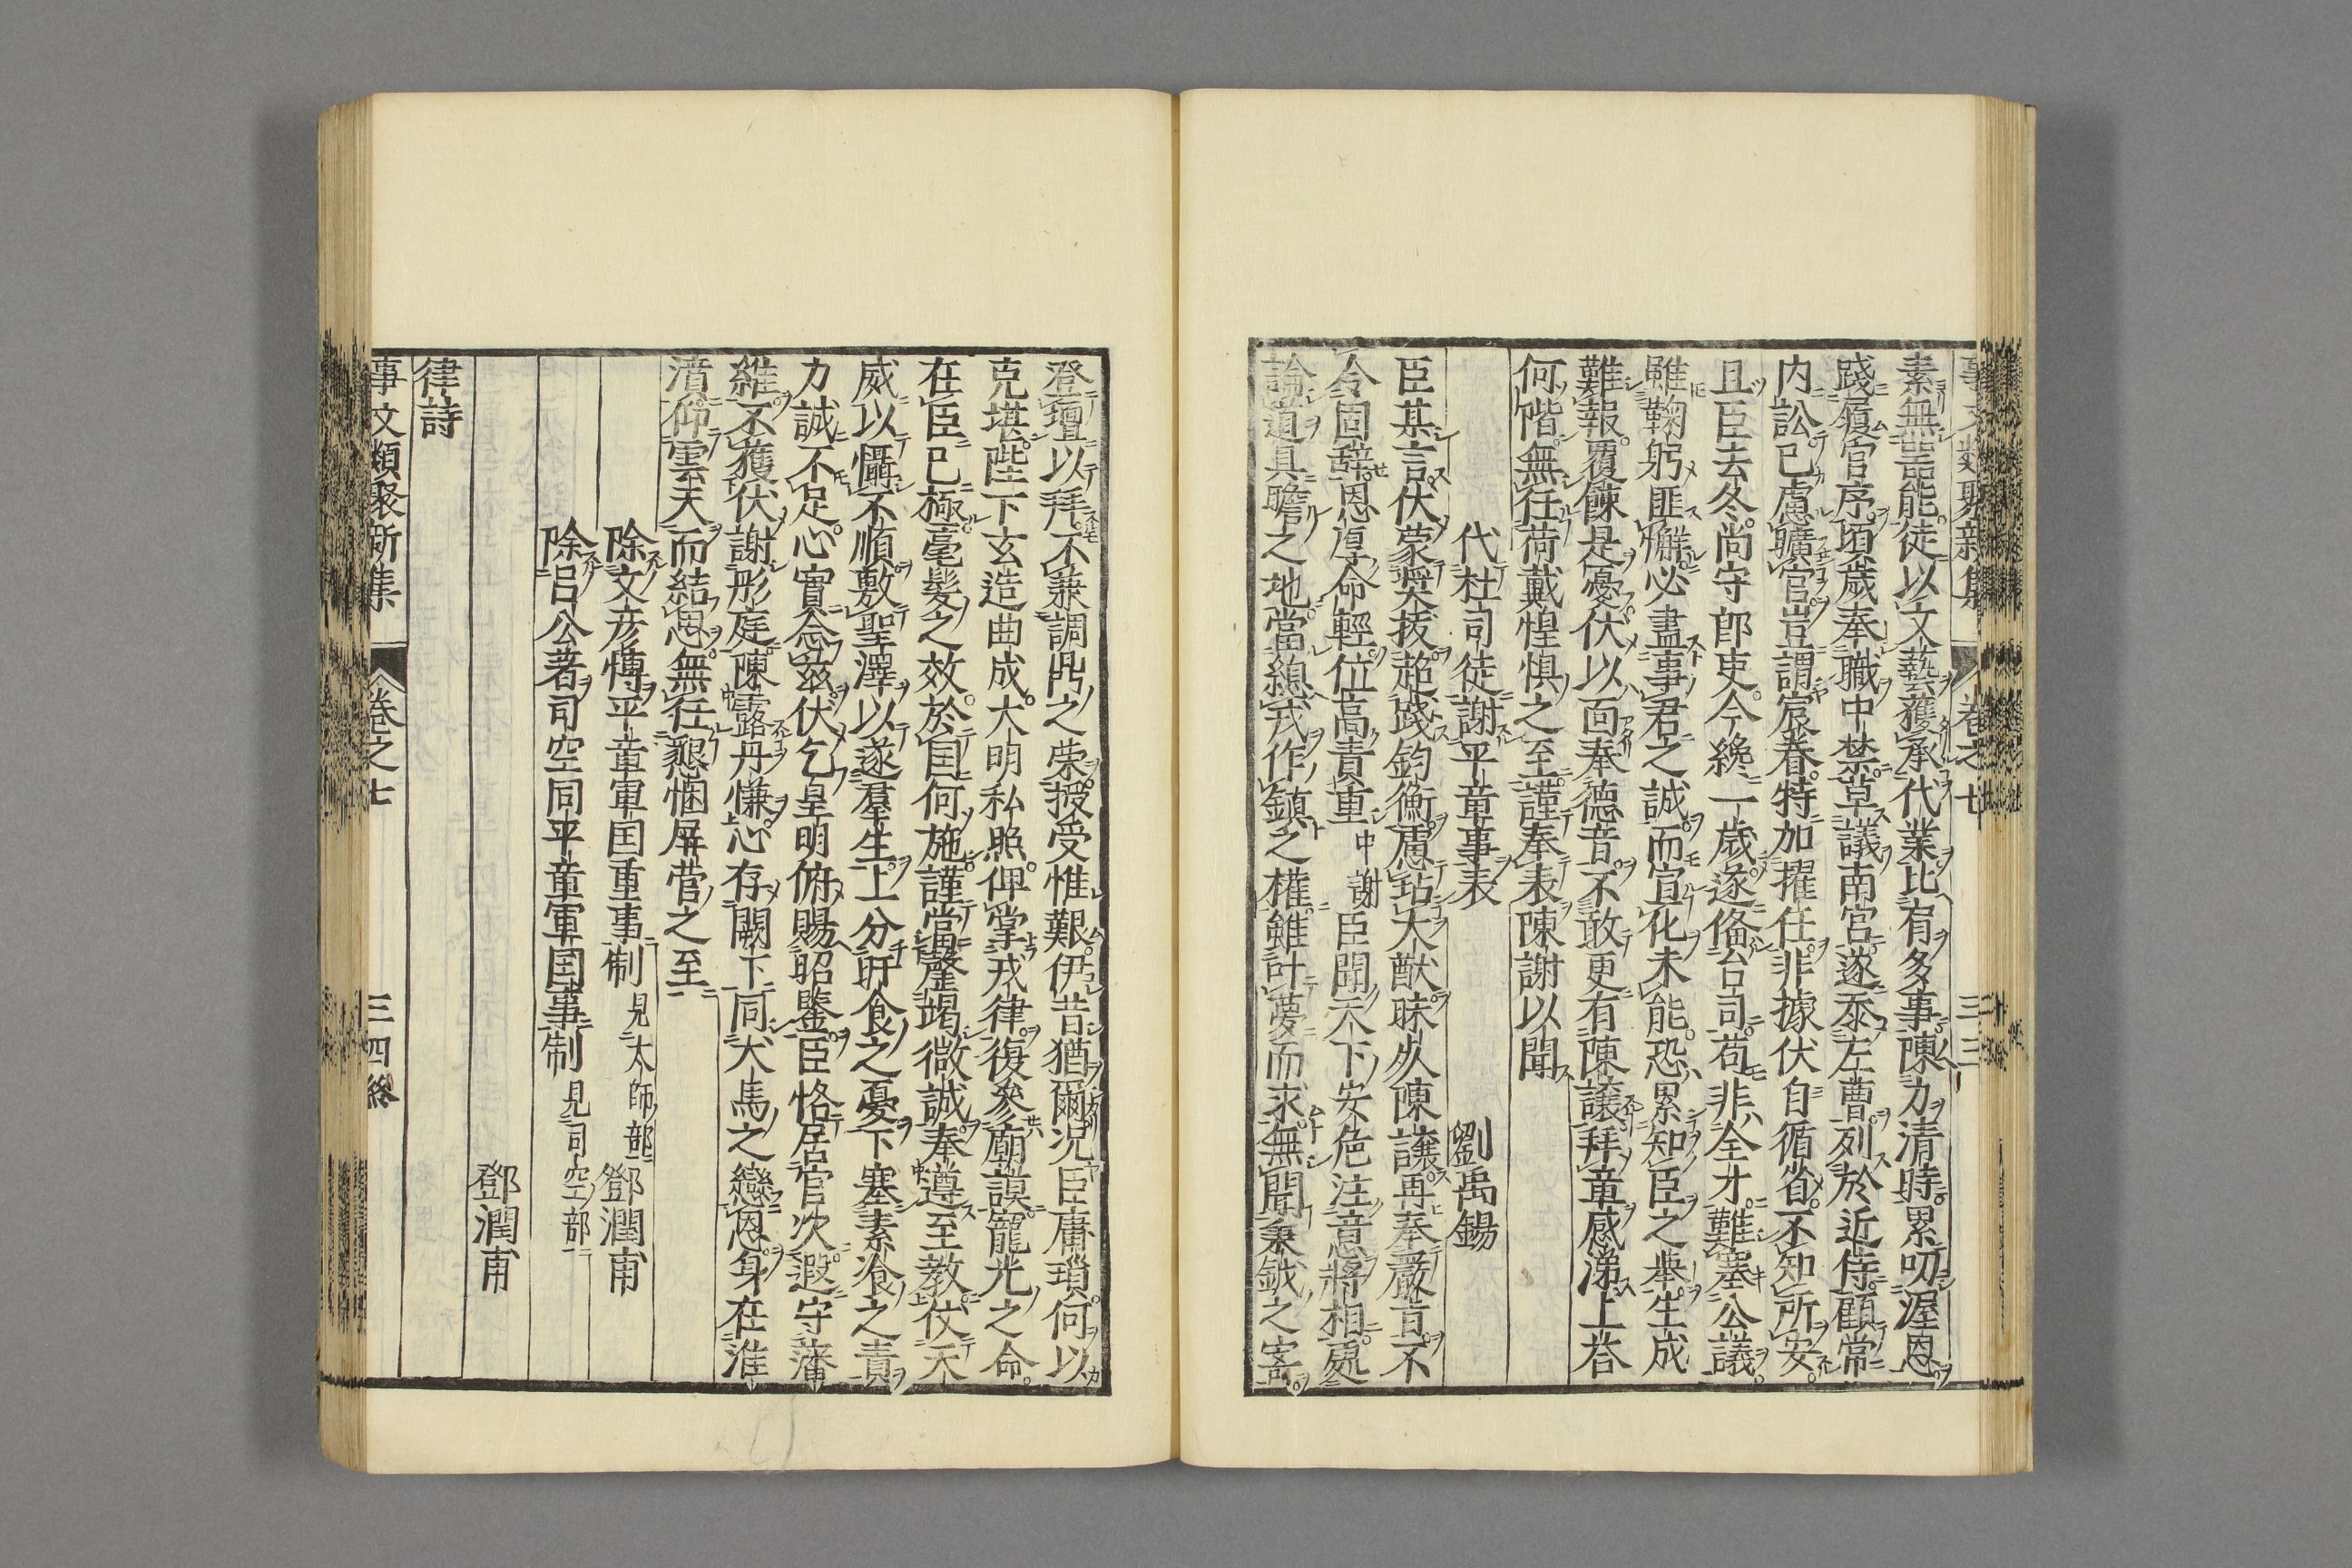 事文類聚新集　卷之七　三三
素無器能徒以文藝獲承代業比宥多事陳力清時累叨渥恩
踐履官序頃歲奉職中禁草議南宮遂忝左曹列於近侍顧常
内訟已慮曠官豈謂宸眷特加擢任非據伏自循省不知所安
且臣去冬尚守郎吏今纔一歲遂俻台司苟非全才難塞公議
雖鞠躬匪懈必盡事君之誠而宣化未能恐累知臣之舉生成
難報覆餗是憂伏以面奉德音不敢更有陳讓拜章感涕上荅
何階無任荷戴惶惧之至謹奉表陳謝以聞
代杜司徒謝平章事表　劉禹錫
臣某言伏蒙奬拔超踐鈞衡慮玷大猷昧死陳讓再奉嚴旨不
令固辞恩厚命輕位高責重中謝臣聞天下安危注意將相處
論道具瞻之地當總戎作鎮之權雖計夢而求無聞秉鉞之寄
登壇以拜不兼調鼎之榮授受惟艱伊昔猶爾况臣庸瑣何以
克堪陛下玄造曲成大明私照俾掌戎律復叅廟謨寵光之命
在臣已極毫髮之效於国何施謹當罄竭微誠奉遵至教仗天
威以懾不順敷聖澤以遂羣生上分旰食之憂下塞素飡之責
力誠不足心實念兹伏乞皇明俯賜昭鑒臣恪居官次遐守藩
維不獲伏謝彤庭陳露丹慊心存闕下同犬馬之戀恩身在淮
濆仰雲天而結思無任懇悃屏營之至
除文彦博平章軍国重事制見太師部　鄧潤甫
除呂公著司空同平章軍国事制見司空部
鄧潤甫
律詩
事文類聚新集　卷之七　三四終